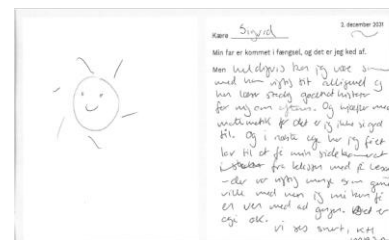 2. december 2021
Kære Sigrid
Min far er kommet i fængsel, og det er jeg ked af.
Men heldigvis kan jeg være sammen
med ham rigtig tit alligevel og
han læser stadig godnathistorier
for mig om aftenen. Og hjælper med
matematik for det er jeg ikke så god
til. Og i næste uge har jeg fået
lov til at få min sidekammerat
fra klassen med på besøg
- der var rigtig mange som gerne
ville med men jeg må kun få
en ven med ad gangen. Det er
også ok.
Vi ses snart, KH